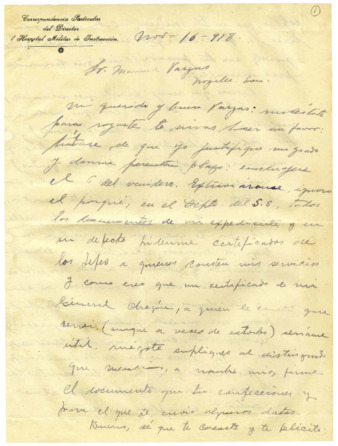 Correspondencia Particular
del Director
Hospital Militar de Instrucción.
1
Nov-16-918.
Sr. Manuel Vargas
Nogales Son.
Mi querido y buen Vargas: molesto
para rogarte te sirvas hacer un favor.
de que yo justifique mi grado
y darme perentorio plazo:
el 6 del venidero. Extraviaronse, ignoro
el porqué, en el Depto del S.S. todos
los documentos de mi expediente y en
su defecto pídenme certificados de
los Jefes a quienes consten mis servicios
y como creo que un certificado de mi
General Obregón, a quien le que
serví (aunque a veces de estorbo) seríame
útil, ruégote supliques al distinguido
que a nombre mío firme
el documento que tu confecciones y
para el que te envío algunos datos.
Bueno, sé que te casaste y te felicito